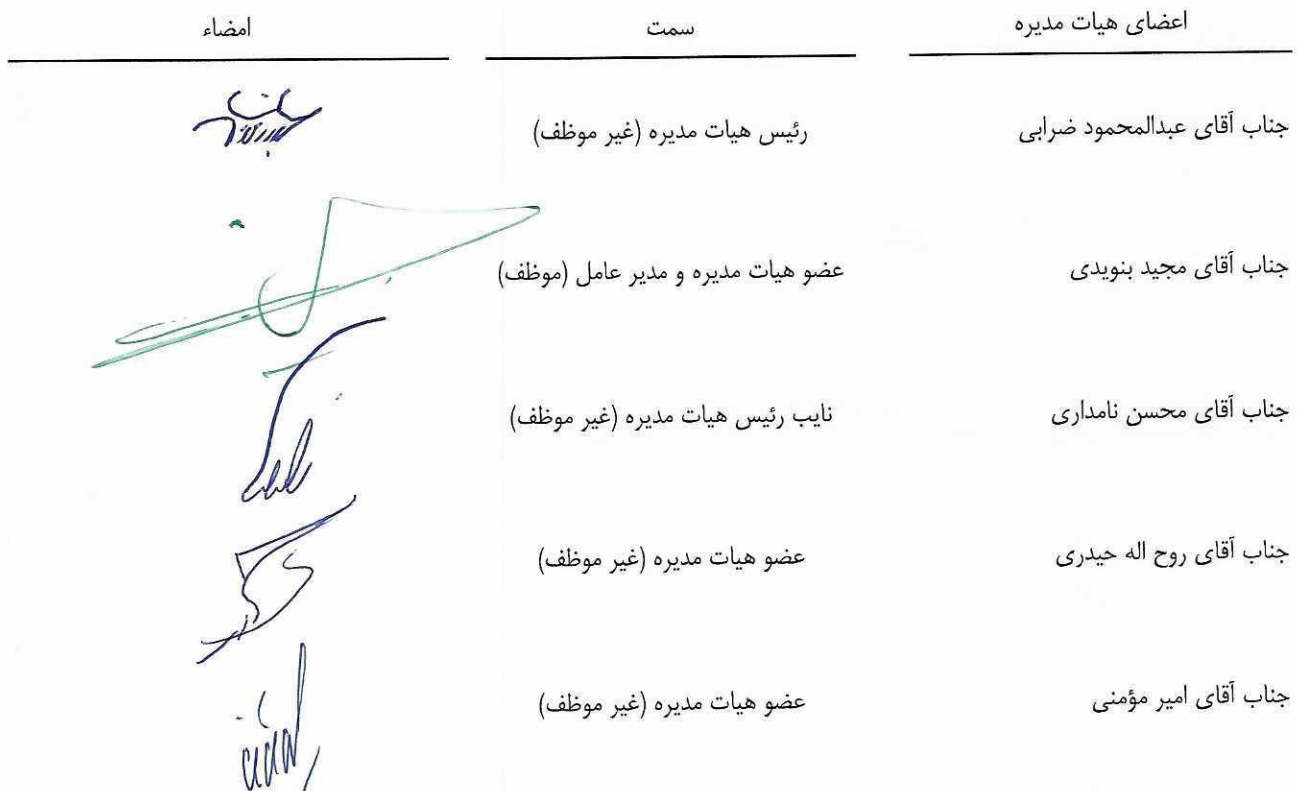 اعضای هیات مدیره سمت امضاء
جناب آقای عبدالمحمود ضرابی رئیس هیات مدیره (غیر موظف)
جناب آقای مجید بنویدی عضو هیات مدیره و مدیر عامل (موظف)
جناب آقای محسن نامداری نایب رئیس هیات مدیره (غیر موظف)
جناب آقای روح اله حیدری عضو هیات مدیره (غیر موظف)
جناب آقای امیر مؤمنی عضو هیات مدیره (غیر موظف)